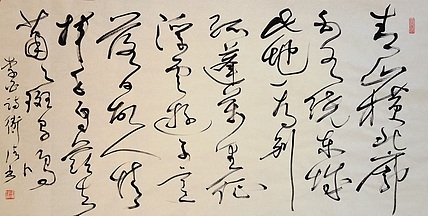 青山横北郭
白水绕东城
此地一为别
孤蓬万里征
浮云游子意
落日故人情
挥手自兹去
萧々斑马鸣
李白诗